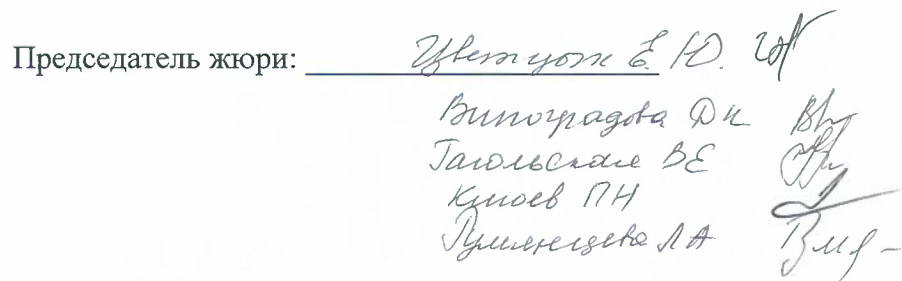 Председатель жюри: Цветцых Е. Ю.
Виноградова Д Н
Гагольская В Е
Князев П Н
Румянцева Л А